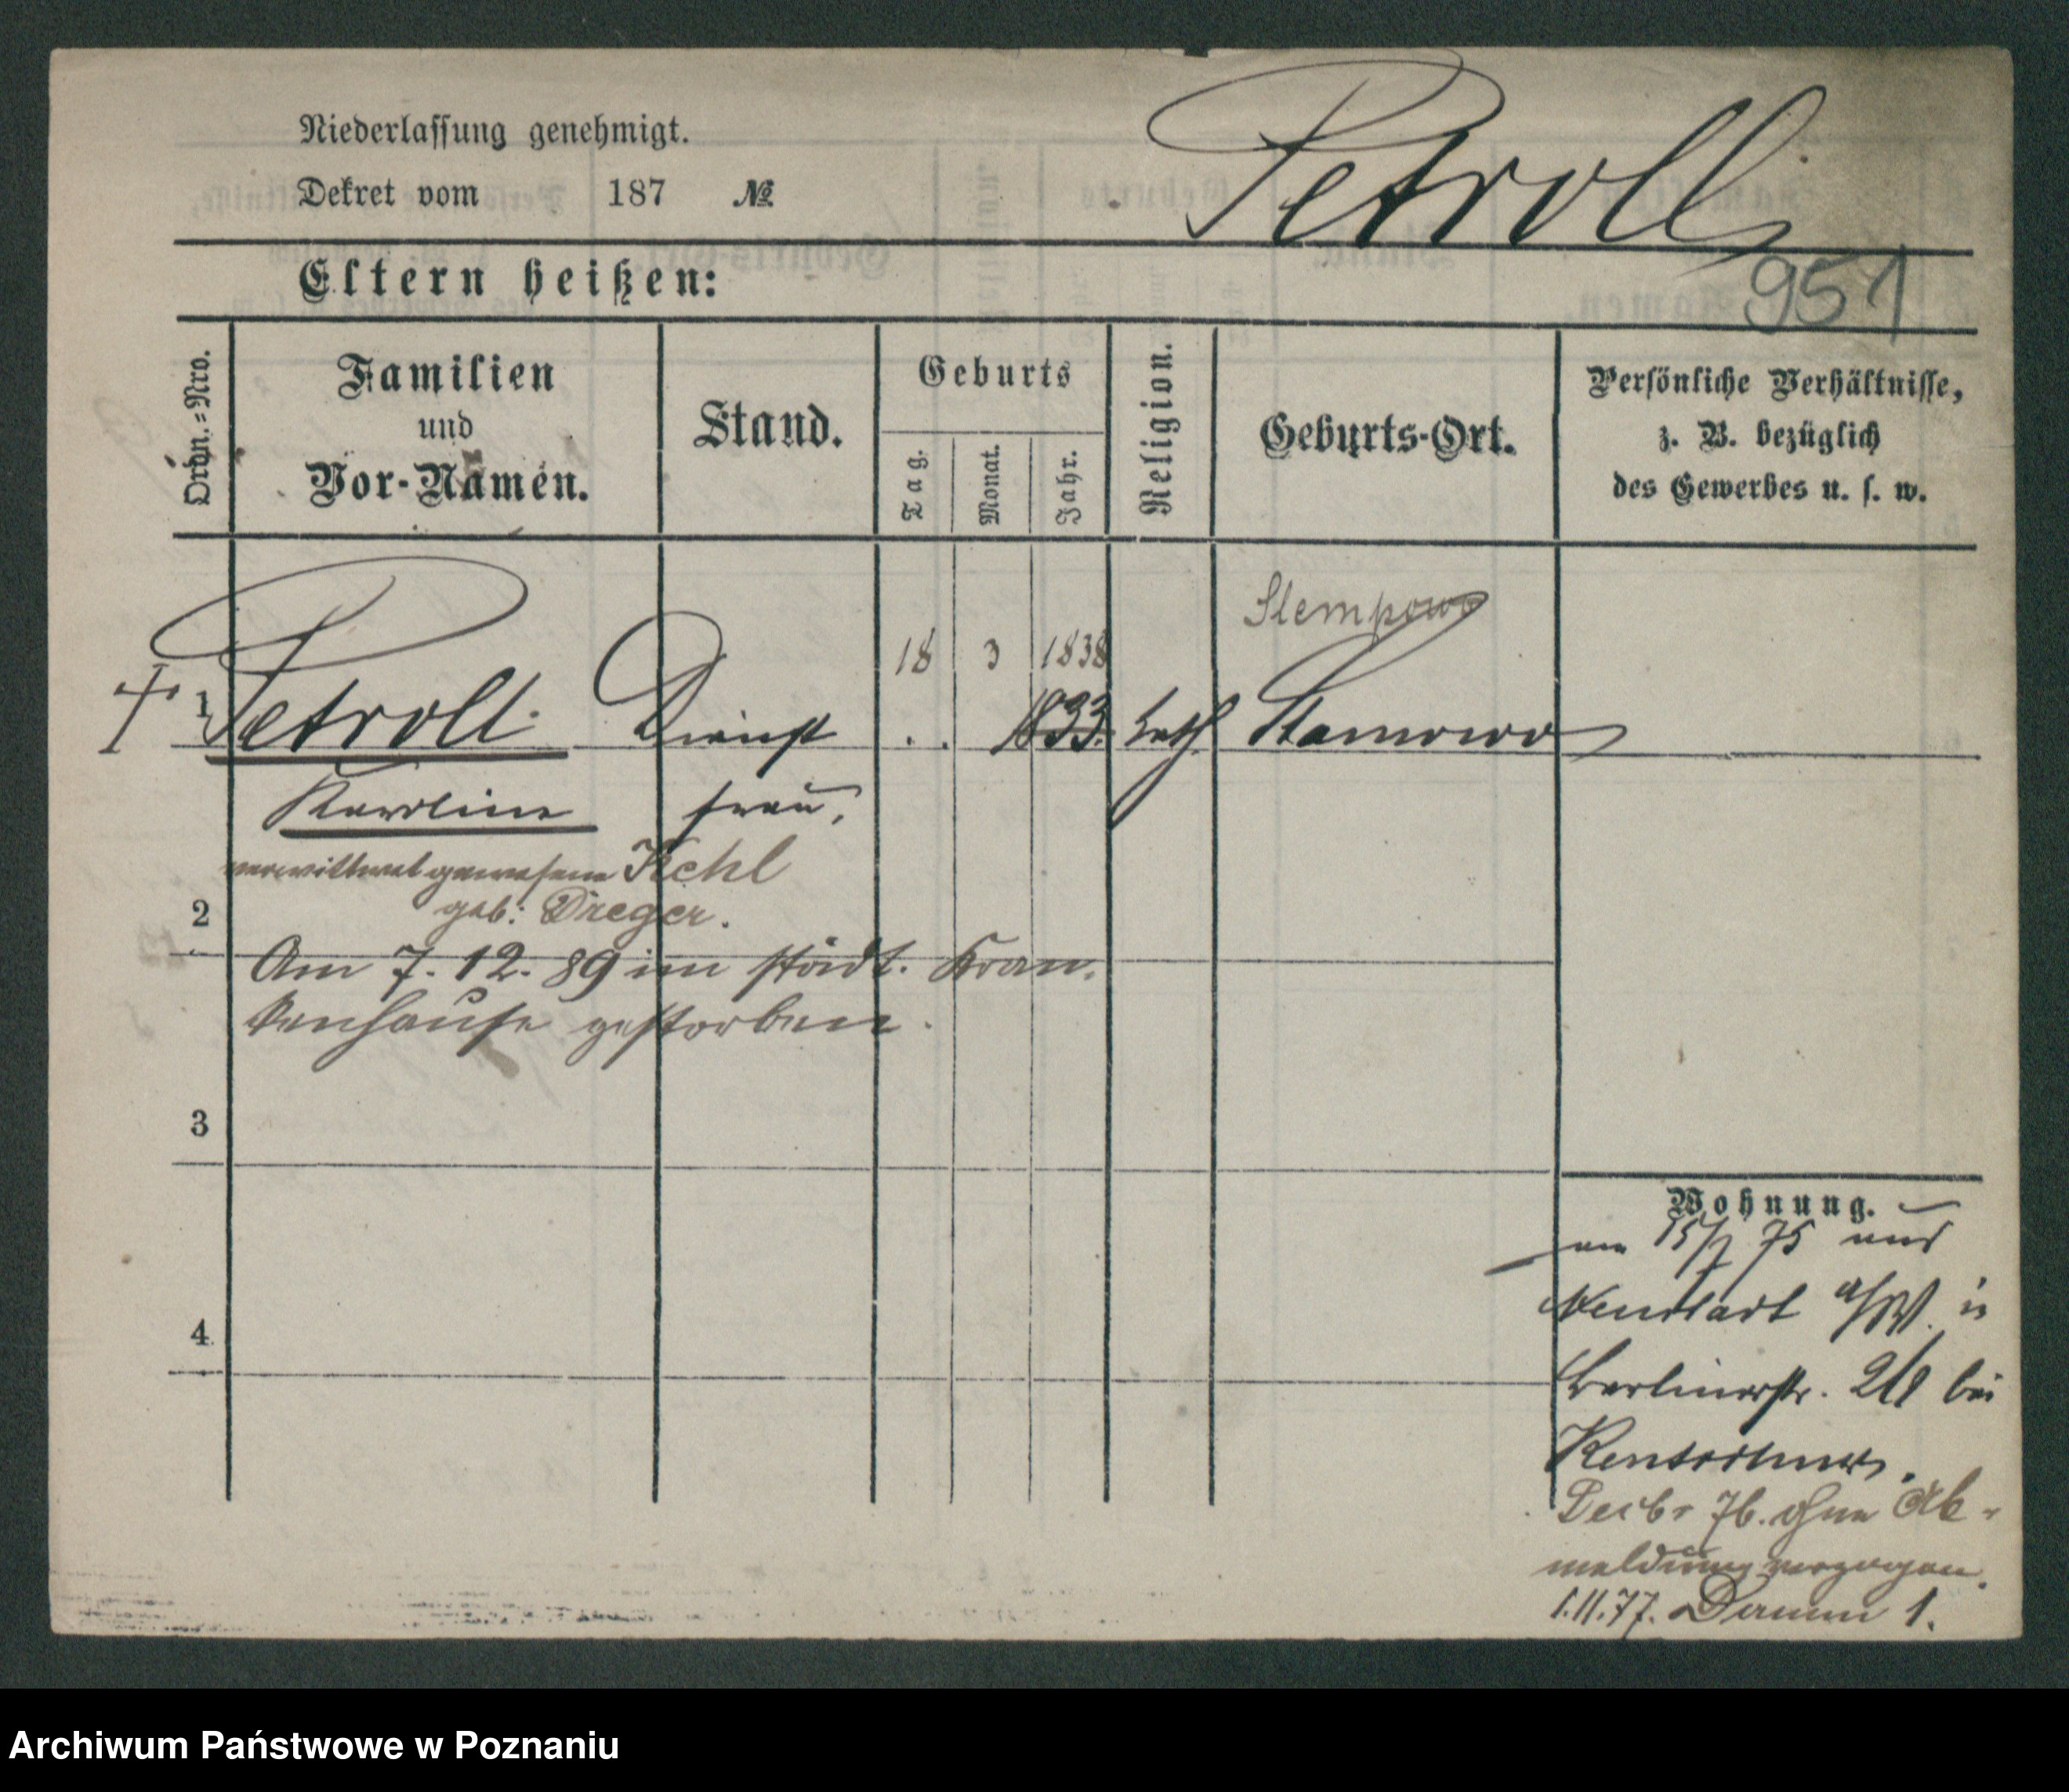 Niederlassung genehmigt.
Dekret vom 187 №
Petroll
Eltern heißen:
951
Ordn.=Nro.
Familien
und
Vor-Namen.
Stand.
Geburts
Tag.
Monat.
Jahr.
Religion.
Geburts-Ort.
Persönliche Verhältnisse,
z. B. bezüglich
des Gewerbes u. s. w.
Stempowo
18 3 1838
1 Petroll Dienst 1833. kath.
Karoline frau,
verwittwet gewesene Kehl
geb: Dreger.
2
Am 7. 12. 89 im städt. Kran-
kenhause gestorben.
3
Wohnung.
am 15/7 75 aus
4
Neustadt a/W. in
Berlinerstr. bei
Decbr 76. ohne Ab-
meldung verzogen.
1.11.77. Damm 1.
Archiwum Państwowe w Poznaniu